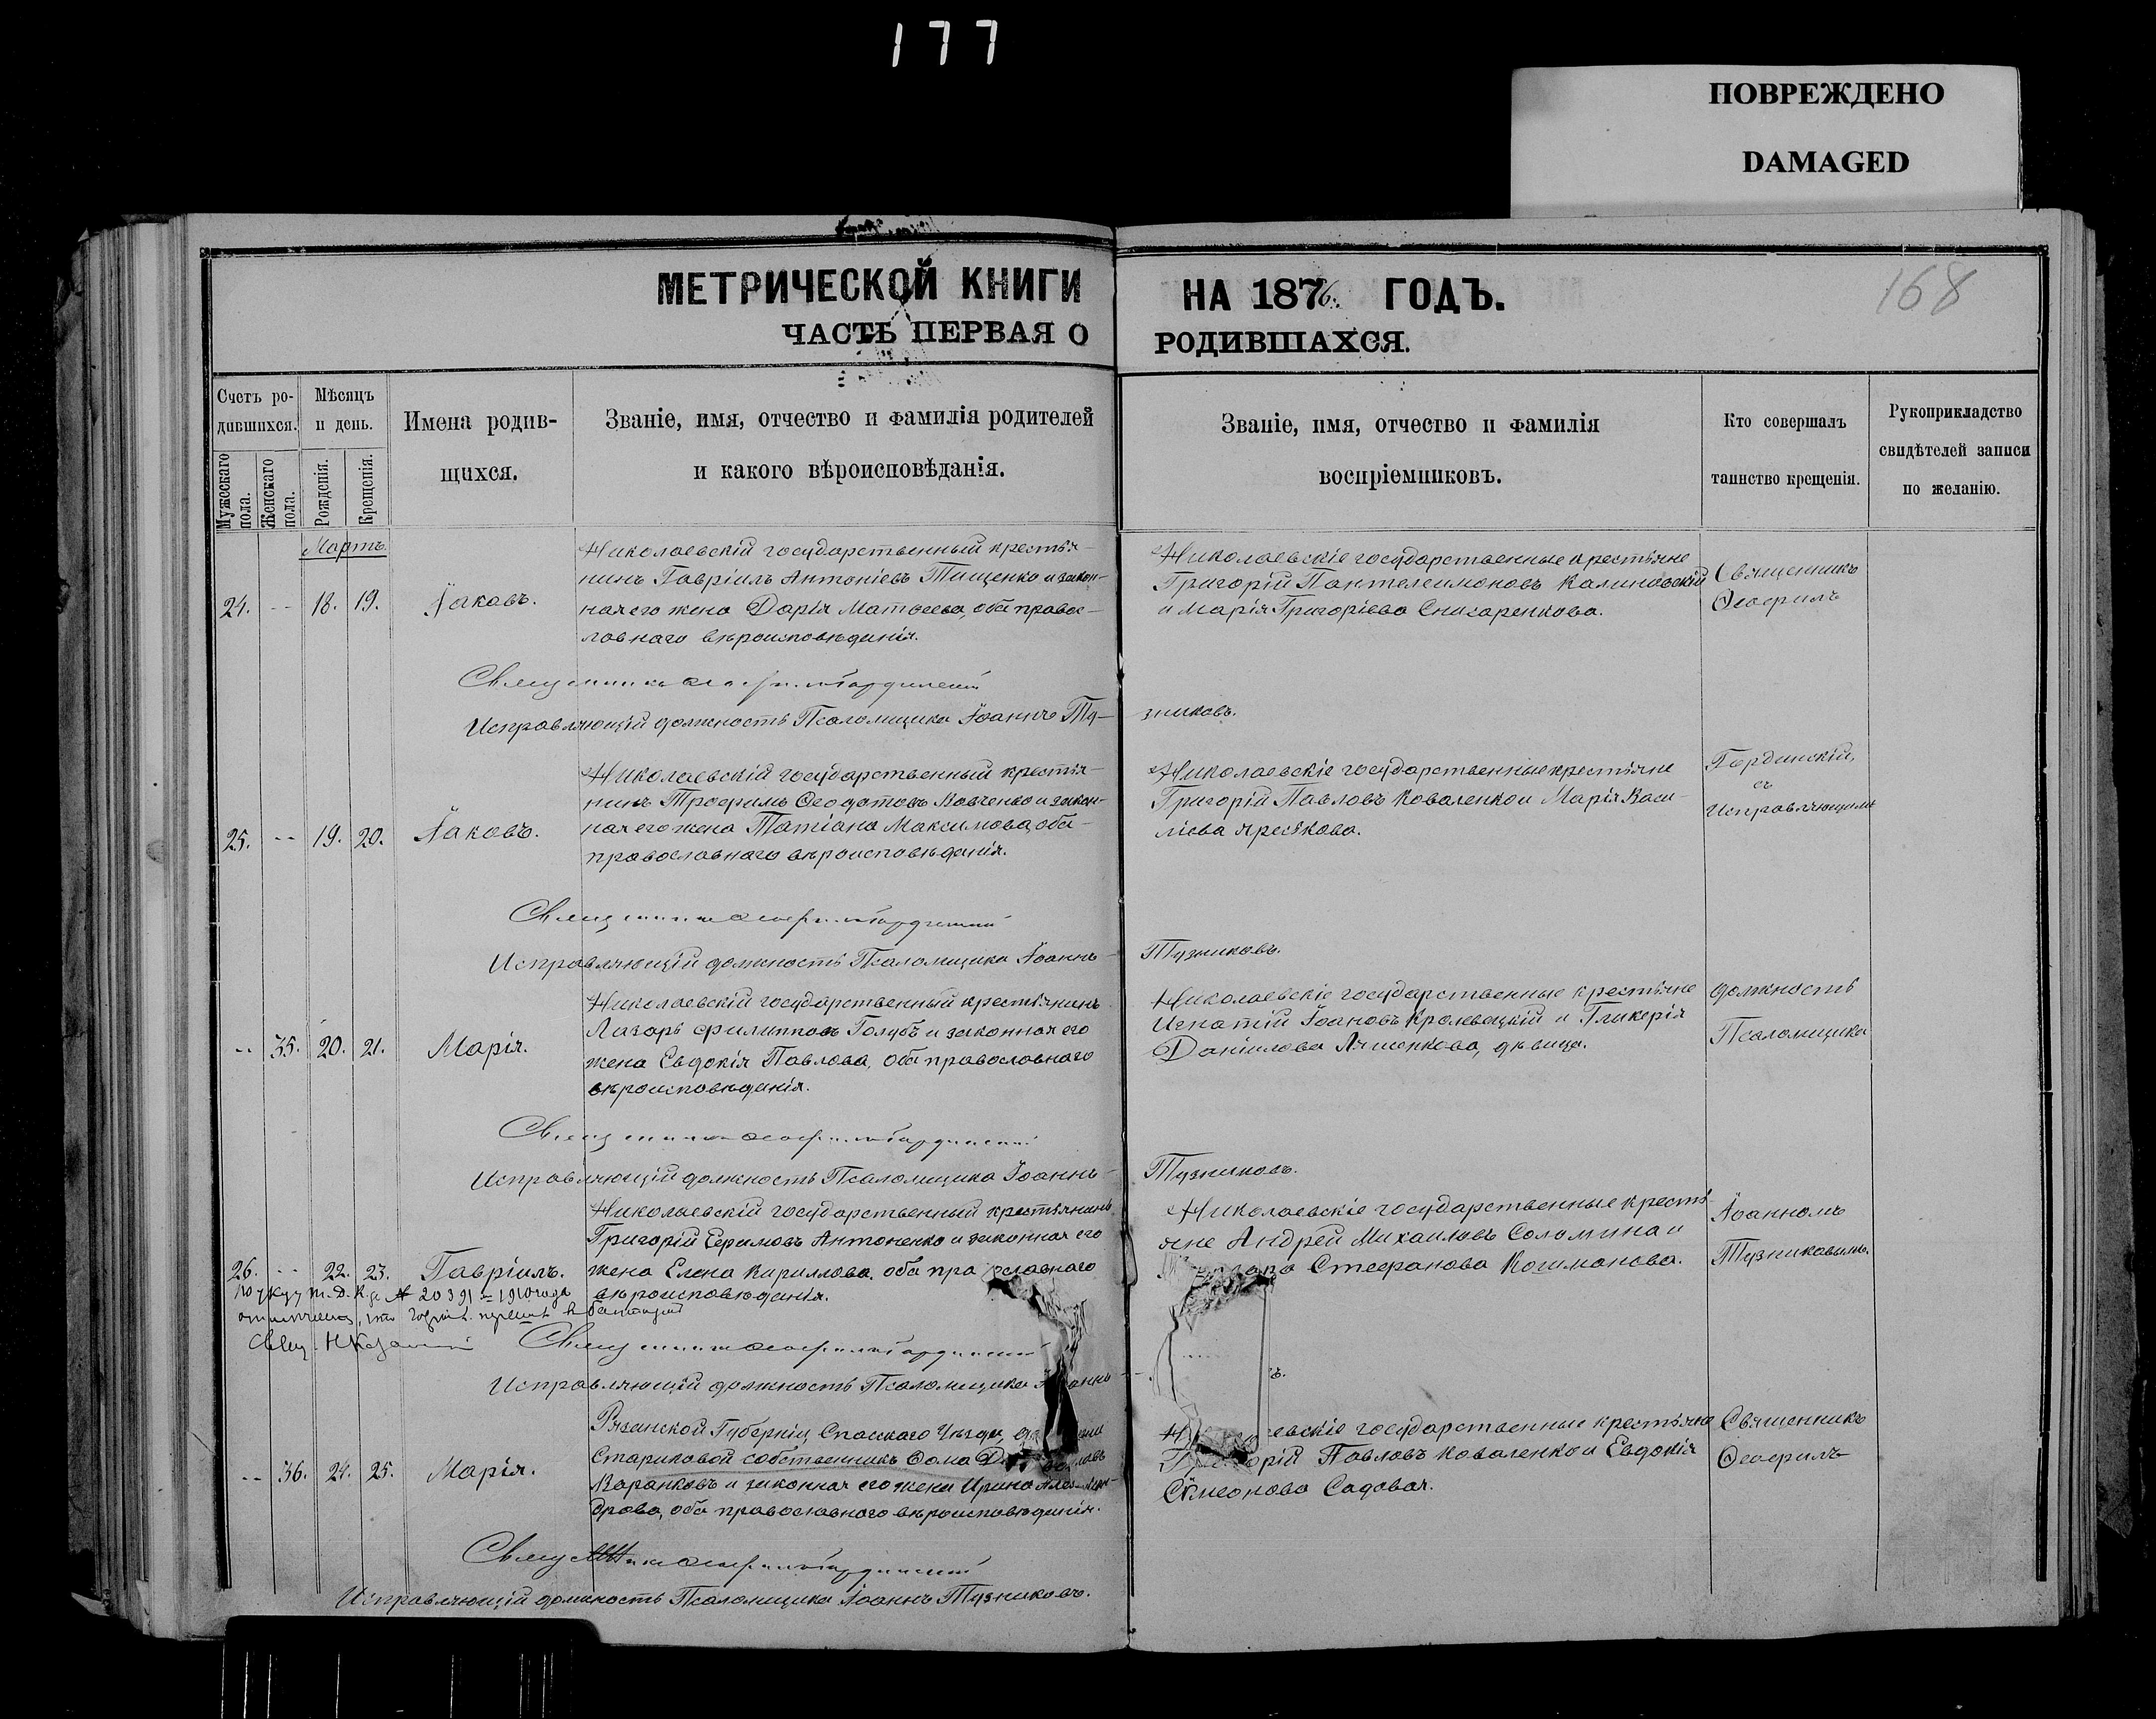 177
ПОВРЕЖДЕНО
DAMAGED
168
МЕТРИЧЕСКОЙ КНИГИ НА 1876. ГОДЪ.
ЧАСТЬ ПЕРВАЯ О РОДИВШАХСЯ.
Счетъ ро-
дившихся.
Мужескаго пола.
Женскаго пола.
Мѣсяцъ
и день.
Рожденія.
Крещенія.
Имена родив-
щихся.
Званіе, имя, отчество и фамилія родителей
и какого вѣроисповѣданія.
Званіе, имя, отчество и фамилія
воспріемниковъ.
Кто совершалъ
таинство крещенія.
Рукоприкладство
свидѣтелей записи
по желанію.
Мартъ
24. -- 18. 19. Іаковъ.
Николаевскій государственный крестья-
нинъ Гавріилъ Антоніевъ Тищенко и закон-
ная его жена Дарія Матѳеева, оба правос-
лавнаго вѣроисповѣданія.
Николаевскіе государственные крестьяне
Григорій Пантелеимоновъ Калиновскій
и Марія Григоріева Снисаренкова.
Священникъ
Ѳеофилъ
Священникъ Ѳеофилъ Гординскій
Исправляющій должность Псаломщика Іоаннъ Ту-
зниковъ.
25. -- 19. 20. Іаковъ.
Николаевскій государственный крестья-
нинъ Трофимъ Ѳеодотовъ Вовченко и закон-
ная его жена Татіана Максимова, оба
православнаго вѣроисповѣданія.
Николаевскіе государственные крестьяне
Григорій Павловъ Коваленко и Марія Васи-
ліева
Гординскій,
съ
Исправляющимъ
Священникъ Ѳеофилъ Гординскій
Исправляющій должность Псаломщика Іоаннъ
Тузниковъ.
-- 35. 20. 21. Марія.
Николаевскій государственный крестьянинъ
Лазарь Филипповъ Голубъ и законная его
жена Евдокія Павлова, оба православнаго
вѣроисповѣданія.
Николаевскіе государственные крестьяне
Игнатій Іоановъ Кролевецкій и Гликерія
Даніилова Ляшенкова, дѣвица.
должность
Псаломщика
Священникъ Ѳеофилъ Гординскій
Исправляющій должность Псаломщика Іоаннъ
Тузниковъ.
26. -- 22. 23. Гавріилъ.
Николаевскій государственный крестьянинъ
Григорій Ефимовъ Антоненко и законная его
жена Елена Кириллова, оба православнаго
вѣроисповѣданія.
Николаевскіе государственные кресть-
яне Андрей Михаиловъ Соломина и
Стефанова Кошманова.
Іоанномъ
Тузниковымъ.
По указу Т. Д. К. № 20391 = 1910 года
Свящ. Н
Священникъ Ѳеофилъ Гординскій
Исправляющій должность Псаломщика Іоаннъ
ъ.
-- 36. 24. 25. Марія.
Рязанской Губерніи, Спасскаго Уѣзда,
Стариковой собственникъ Ѳома
Варанковъ и законная его жена Ирина Алексан-
дрова, оба православнаго вѣроисповѣданія.
евскіе государственные крестьяне
Григорій Павловъ Коваленко и Евдокія
Сѵмеонова Садовая.
Священникъ
Ѳеофилъ
Священникъ Ѳеофилъ Гординскій
Исправляющій должность Псаломщика Іоаннъ Тузниковъ.